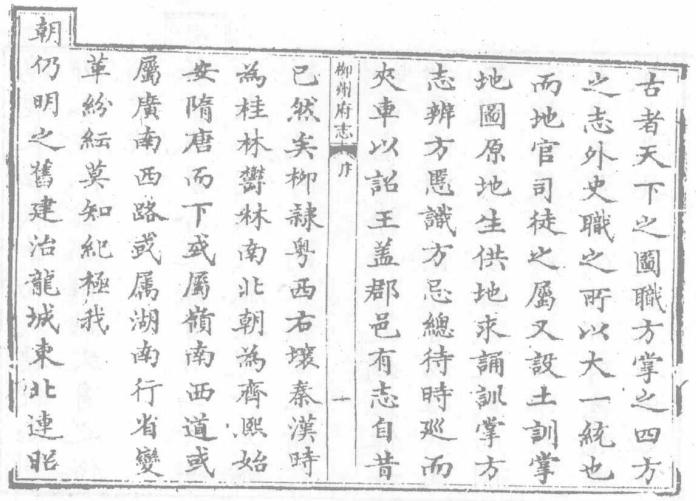 古者天下之圖職方掌之四方
之志外史職之所以大一統也
而地官司徒之屬又設土訓掌
地圖原地生供地求誦訓掌方
志辨方慝識方忌總待時廵而
夾車以詔王盖郡邑有志自昔
柳州府志 序 一
已然矣柳隸粤西右壤秦漢時
為桂林鬱林南北朝為齊熙始
安隋唐而下或屬嶺南西道或
屬廣南西路或属湖南行省變
革紛紜莫知紀極我
朝仍明之舊建治龍城東北連昭